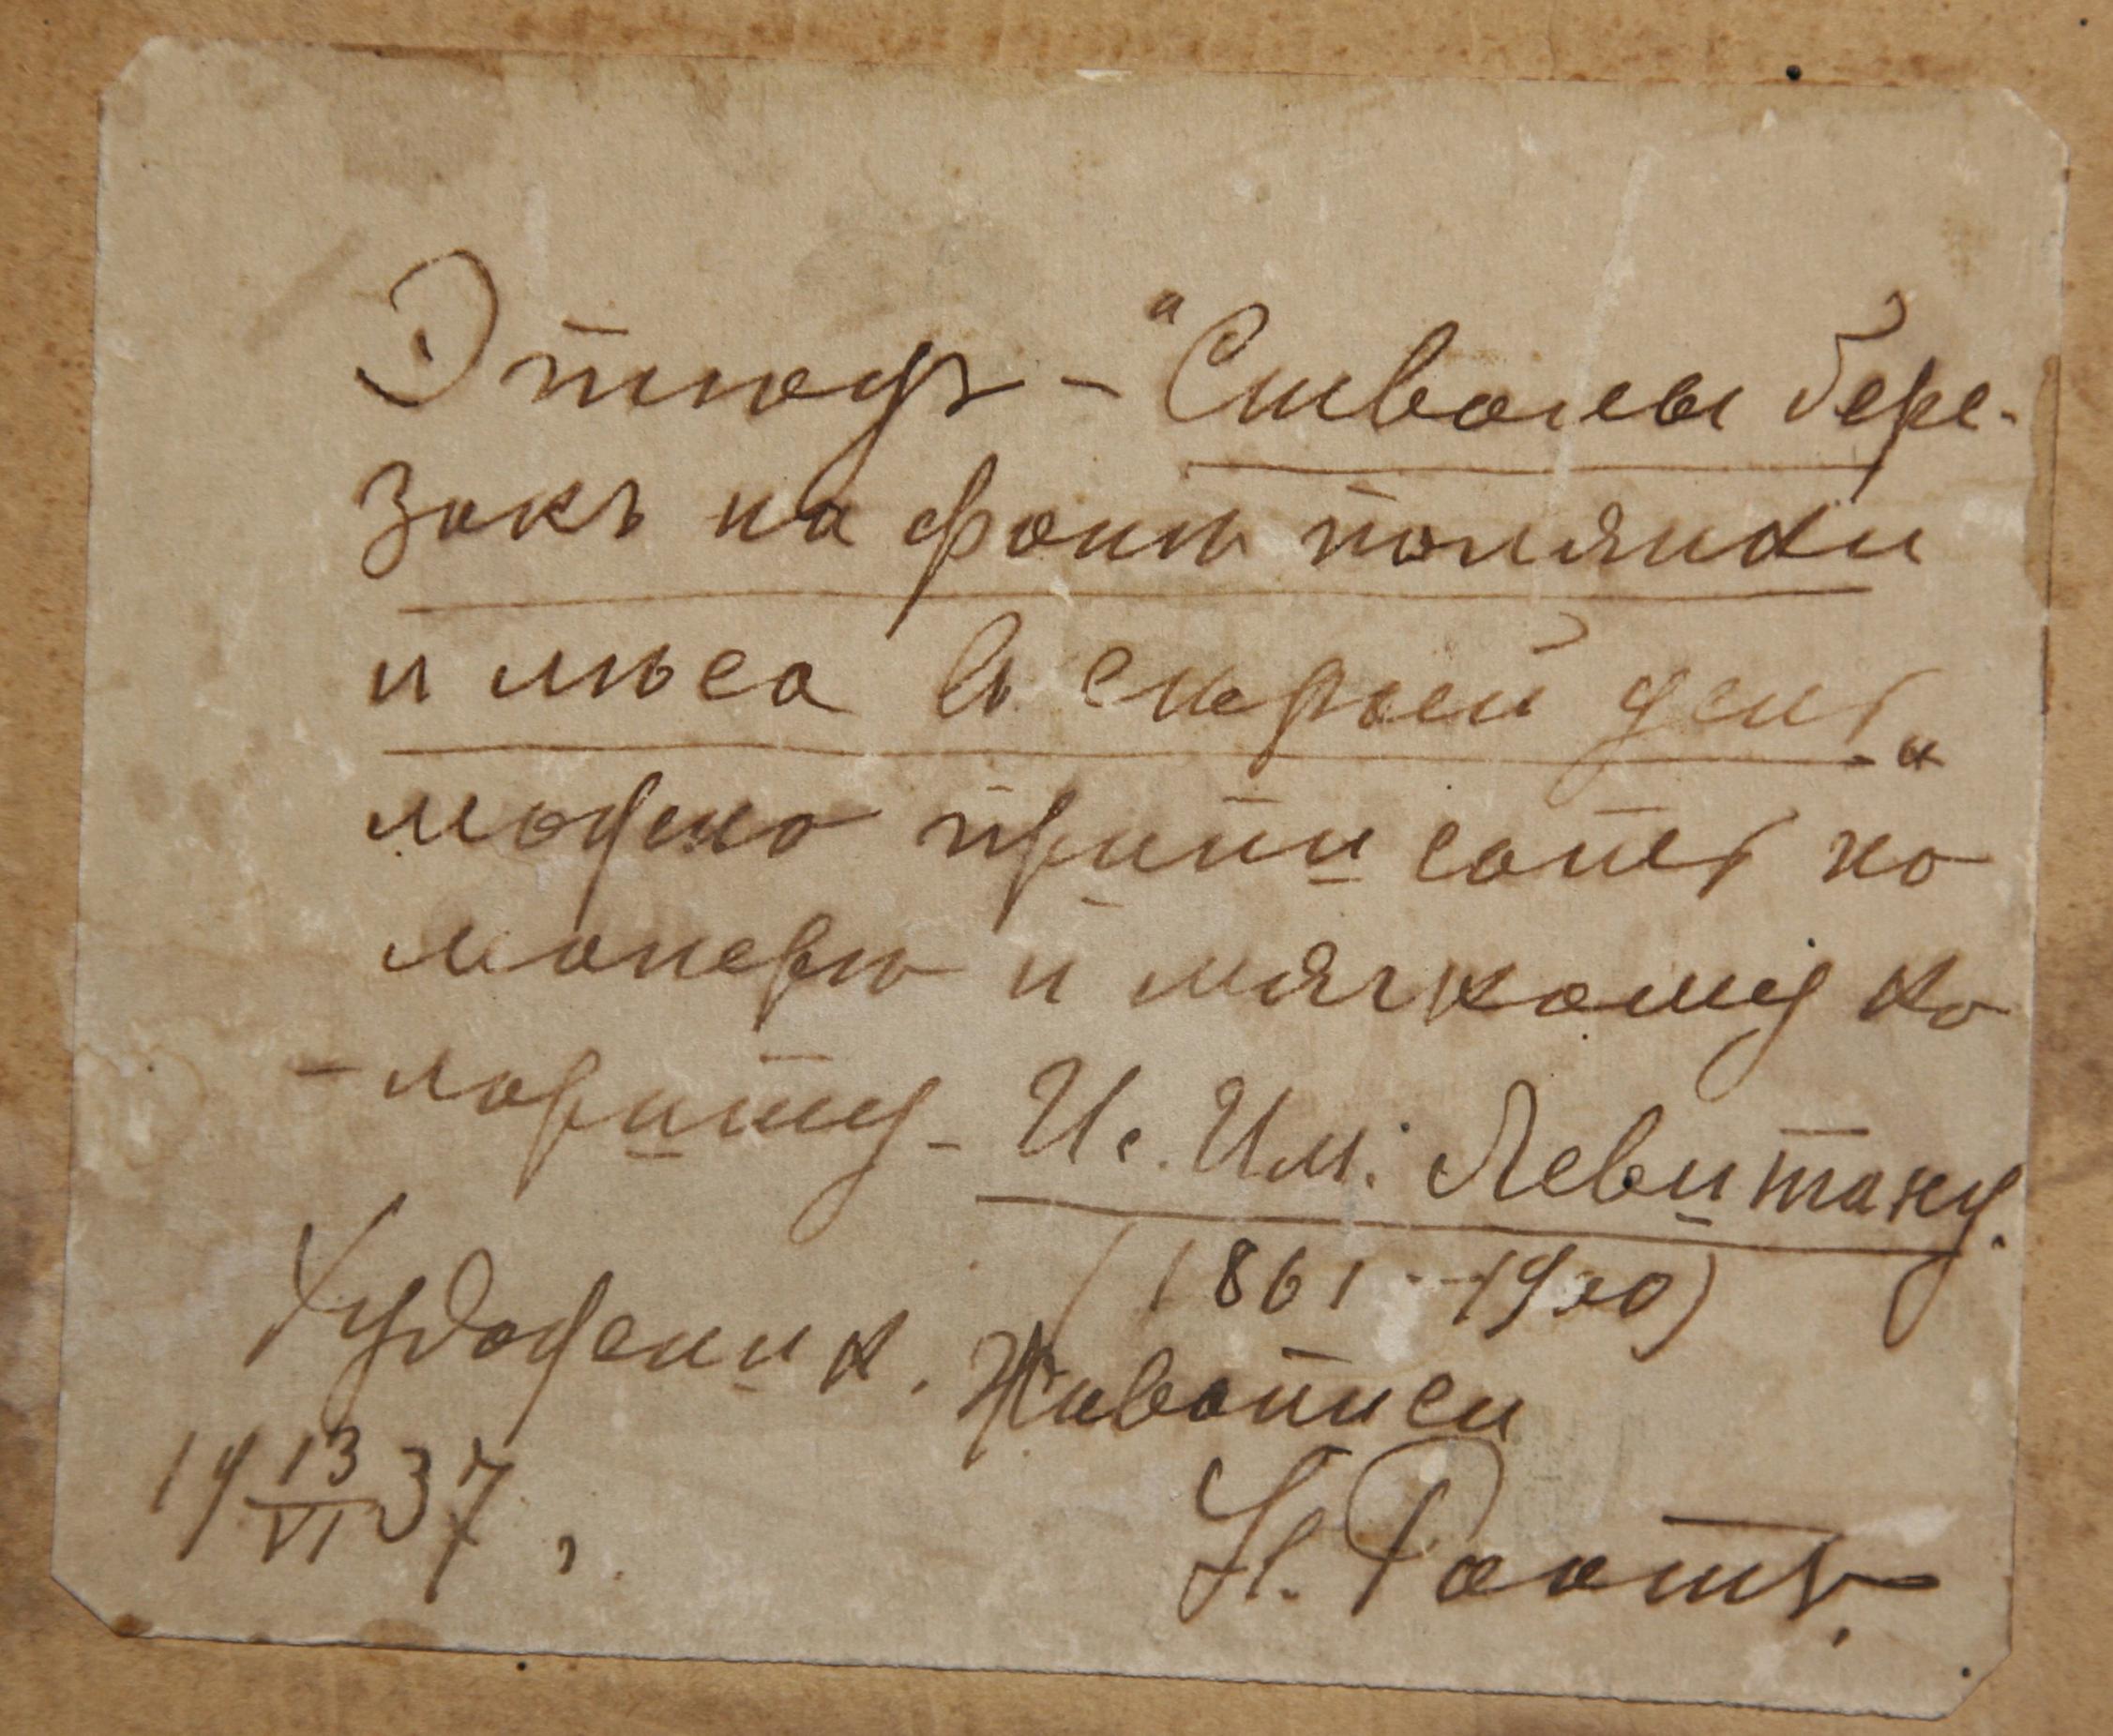 Этюдъ - "Стволы бере-
зокъ на фонѣ полянки
и лѣса въ серый день"
можно приписать по
манерѣ и мягкому ко
-лориту - Ис. Ил. Левитану.
(1861 - 1900)
Художник. Живописи
19 13/VI 37,
Н. Роотъ.